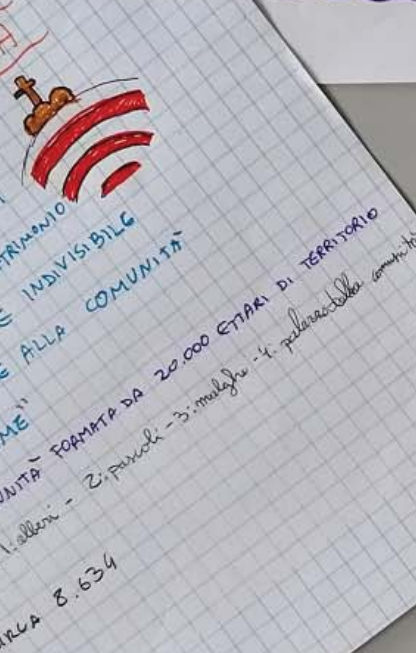 TRIMONIO
E INDIVISIBILE
E ALLA COMUNITÀ
ME"
UNITÀ FORMATA DA 20.000 ETTARI DI TERRITORIO
1. alberi - 2. pascoli - 3. malghe - 4. palazzo della comunità
IRCA 8.634